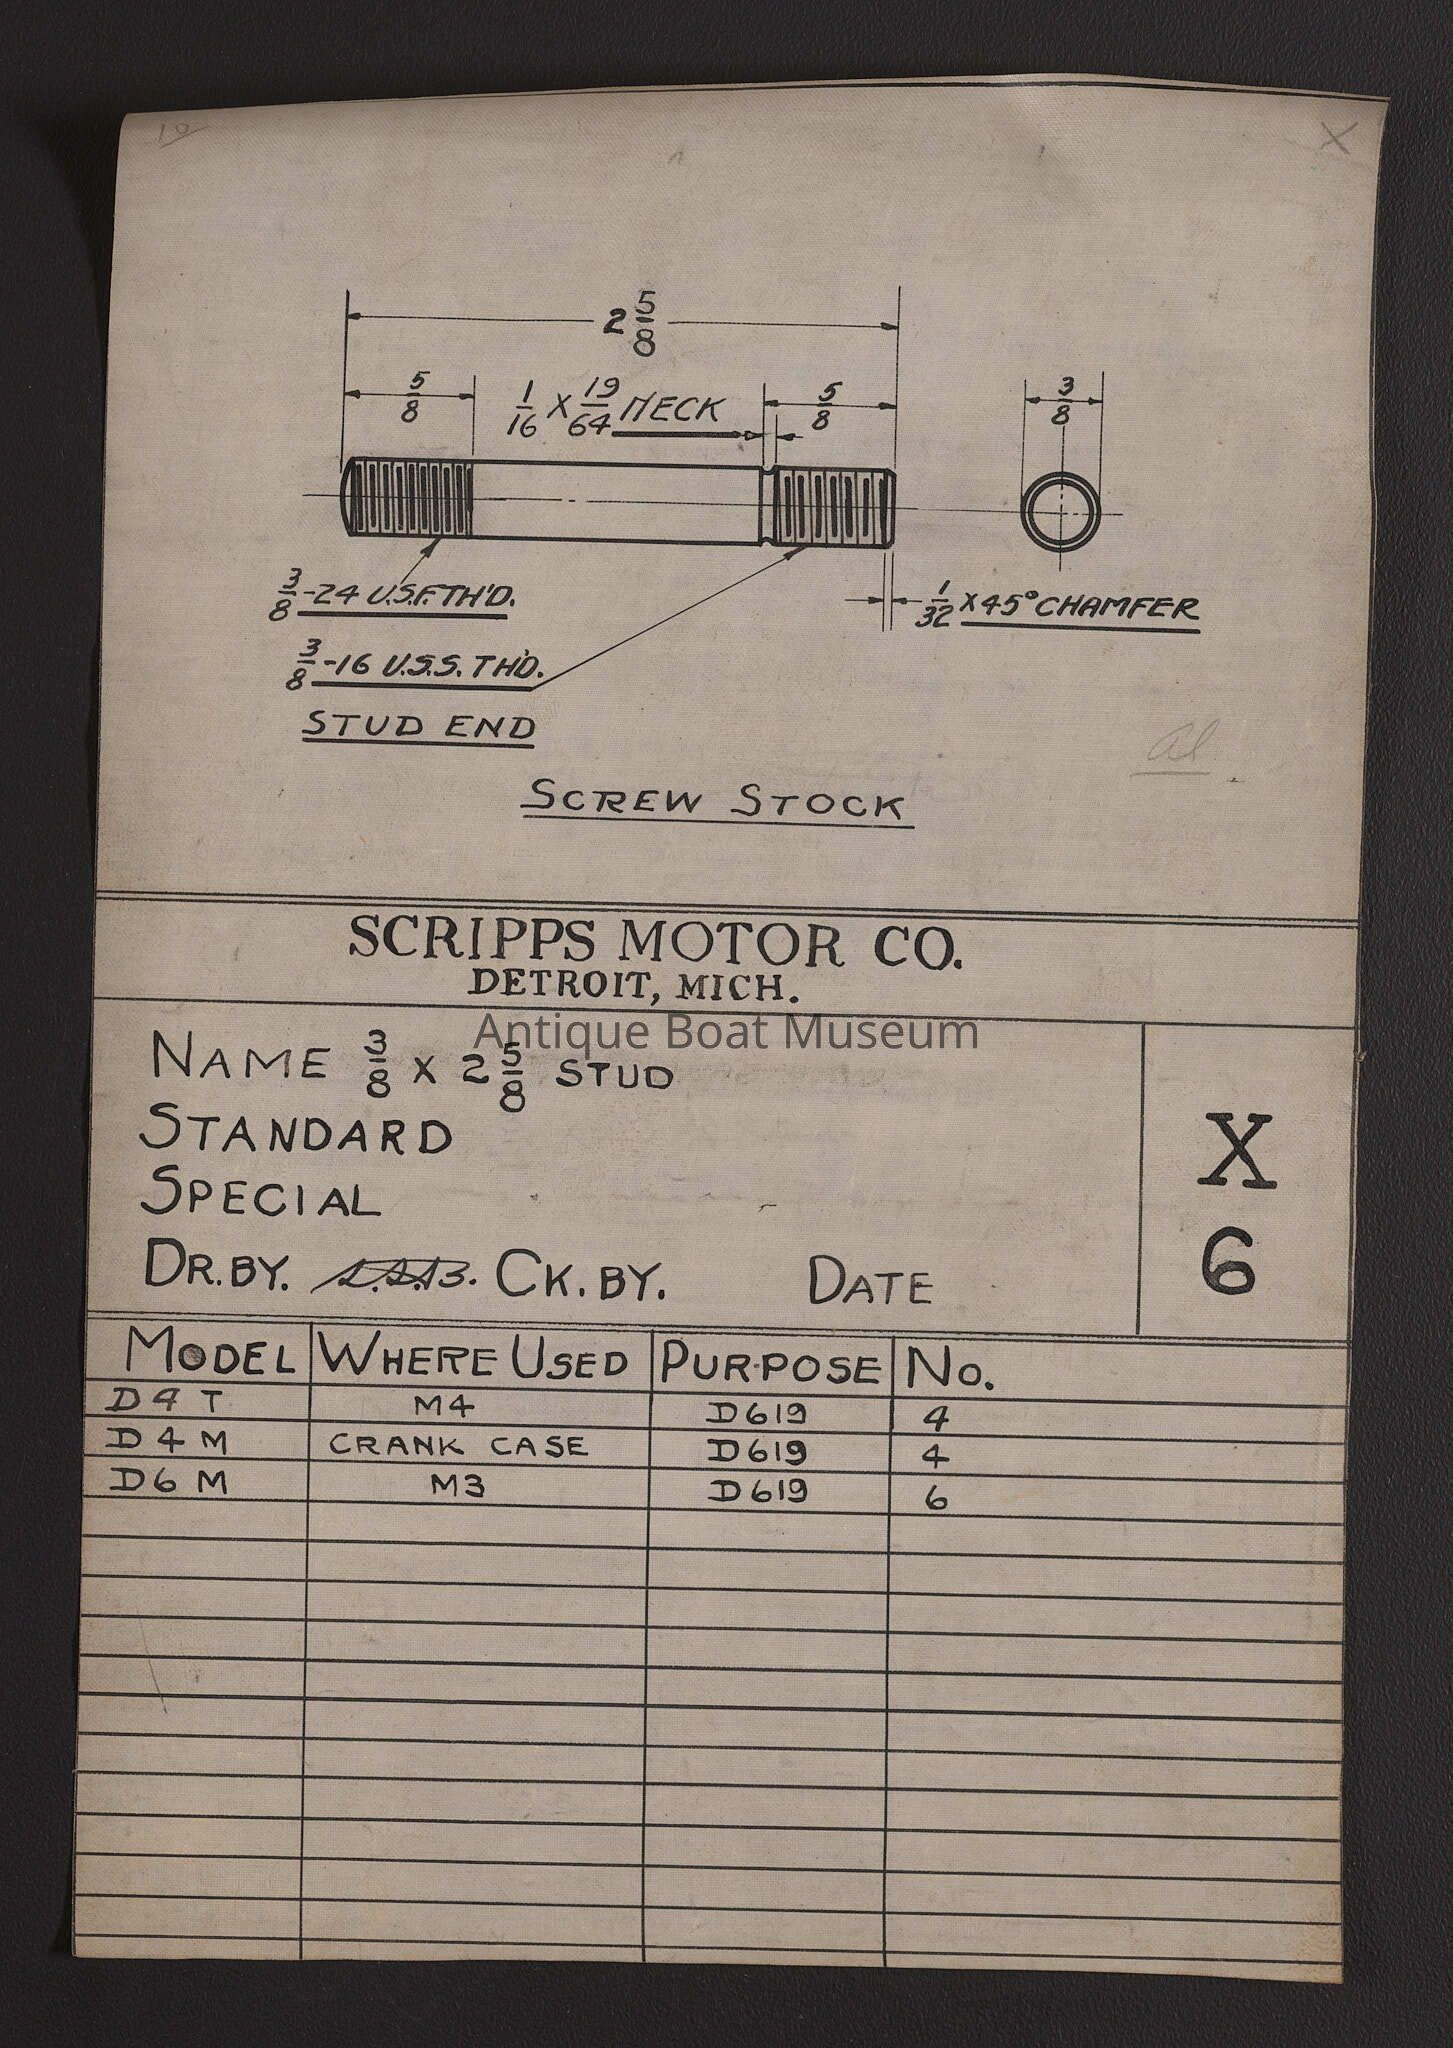 10
X
2 5/8
5/8
1/16 X 19/64 NECK
5/8
3/8
3/8-24 U.S.F. TH'D.
1/32 X 45° CHAMFER
3/8-16 U.S.S. TH'D.
STUD END
SCREW STOCK
SCRIPPS MOTOR CO.
DETROIT, MICH.
Antique Boat Museum
NAME 3/8 X 2 5/8 STUD
STANDARD
SPECIAL
X
6
DR. BY. CK. BY. DATE
MODEL WHERE USED PURPOSE NO.
D4T M4 D619 4
D4M CRANK CASE D619 4
D6M M3 D619 6